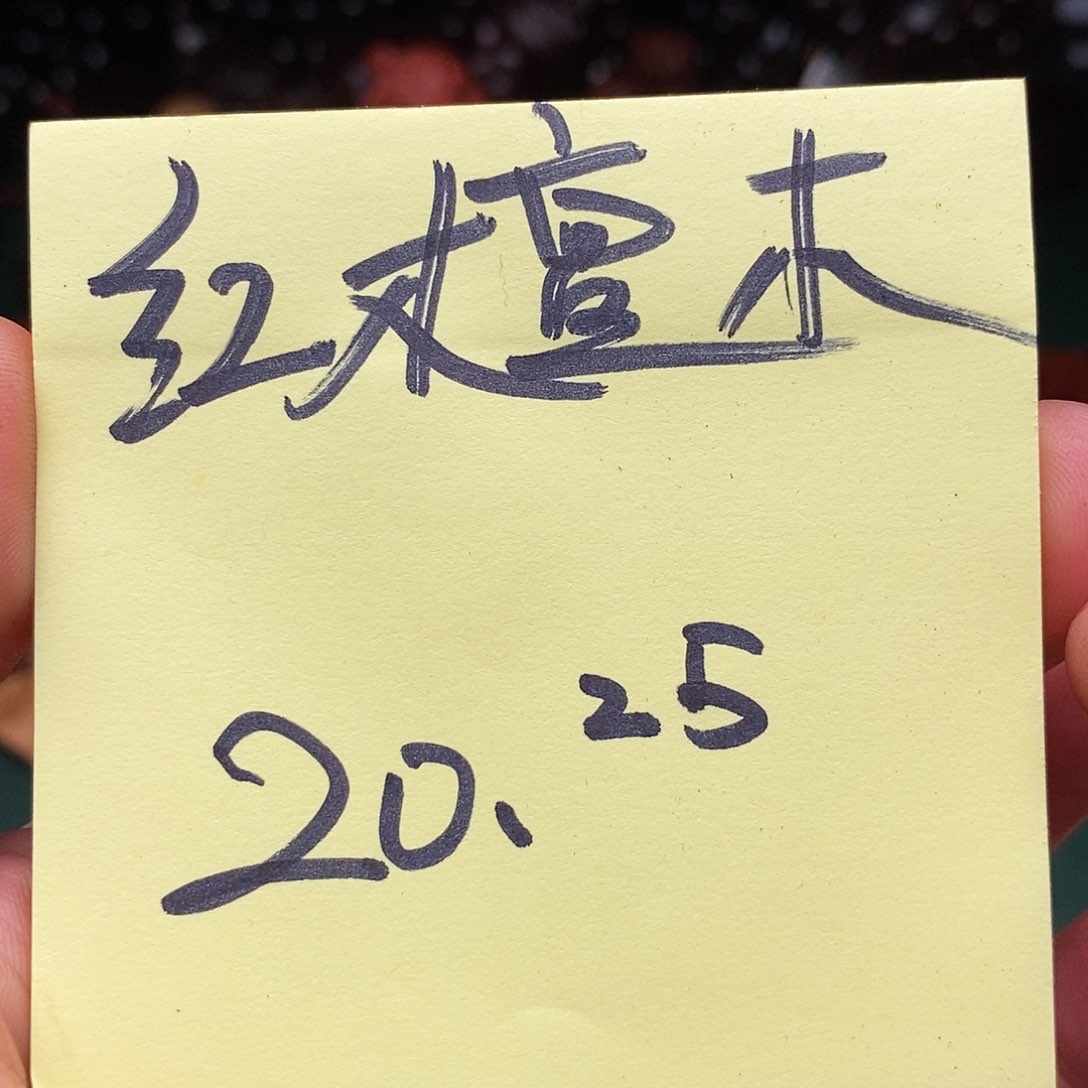 红檀木
20.25